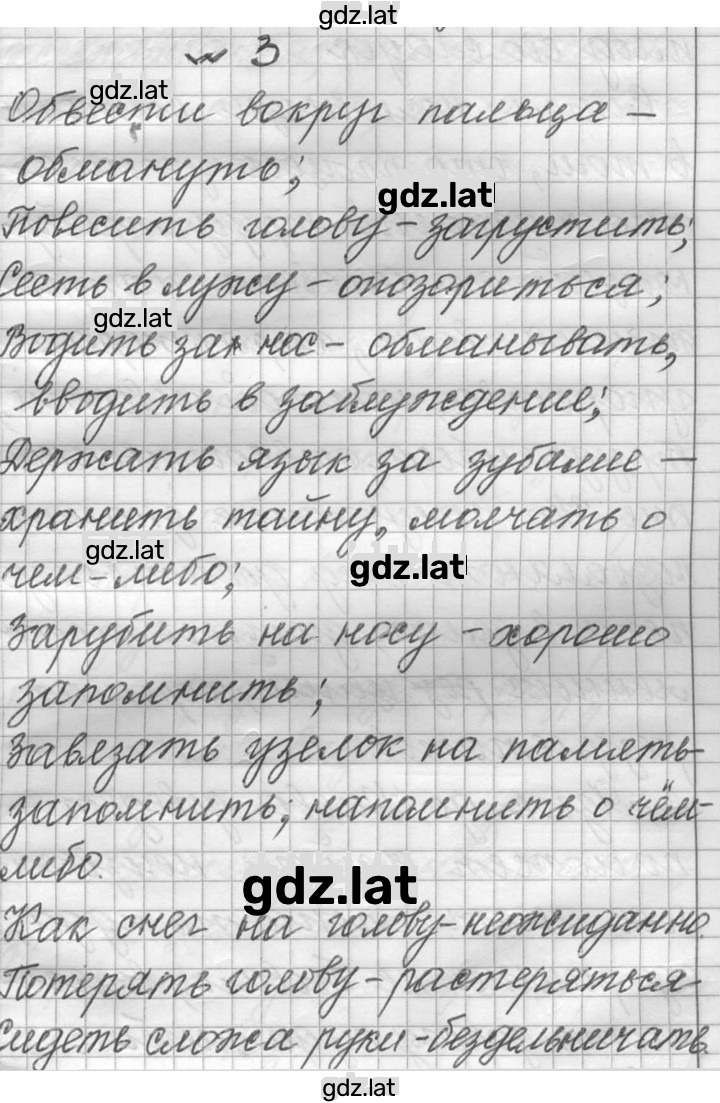 gdz.lat
№ 3
gdz.lat
Обвести вокруг пальца –
обмануть;
gdz.lat
Повесить голову – загрустить;
Сесть в лужу – опозориться;
gdz.lat
Водить за нос – обманывать,
вводить в заблуждение;
Держать язык за зубами –
хранить тайну, молчать о
gdz.lat
чем-либо;
gdz.lat
Зарубить на носу – хорошо
запомнить;
Завязать узелок на память-
запомнить; напомнить о чём-
либо.
gdz.lat
Как снег на голову – неожиданно.
Потерять голову – растеряться
Сидеть сложа руки – бездельничать.
gdz.lat